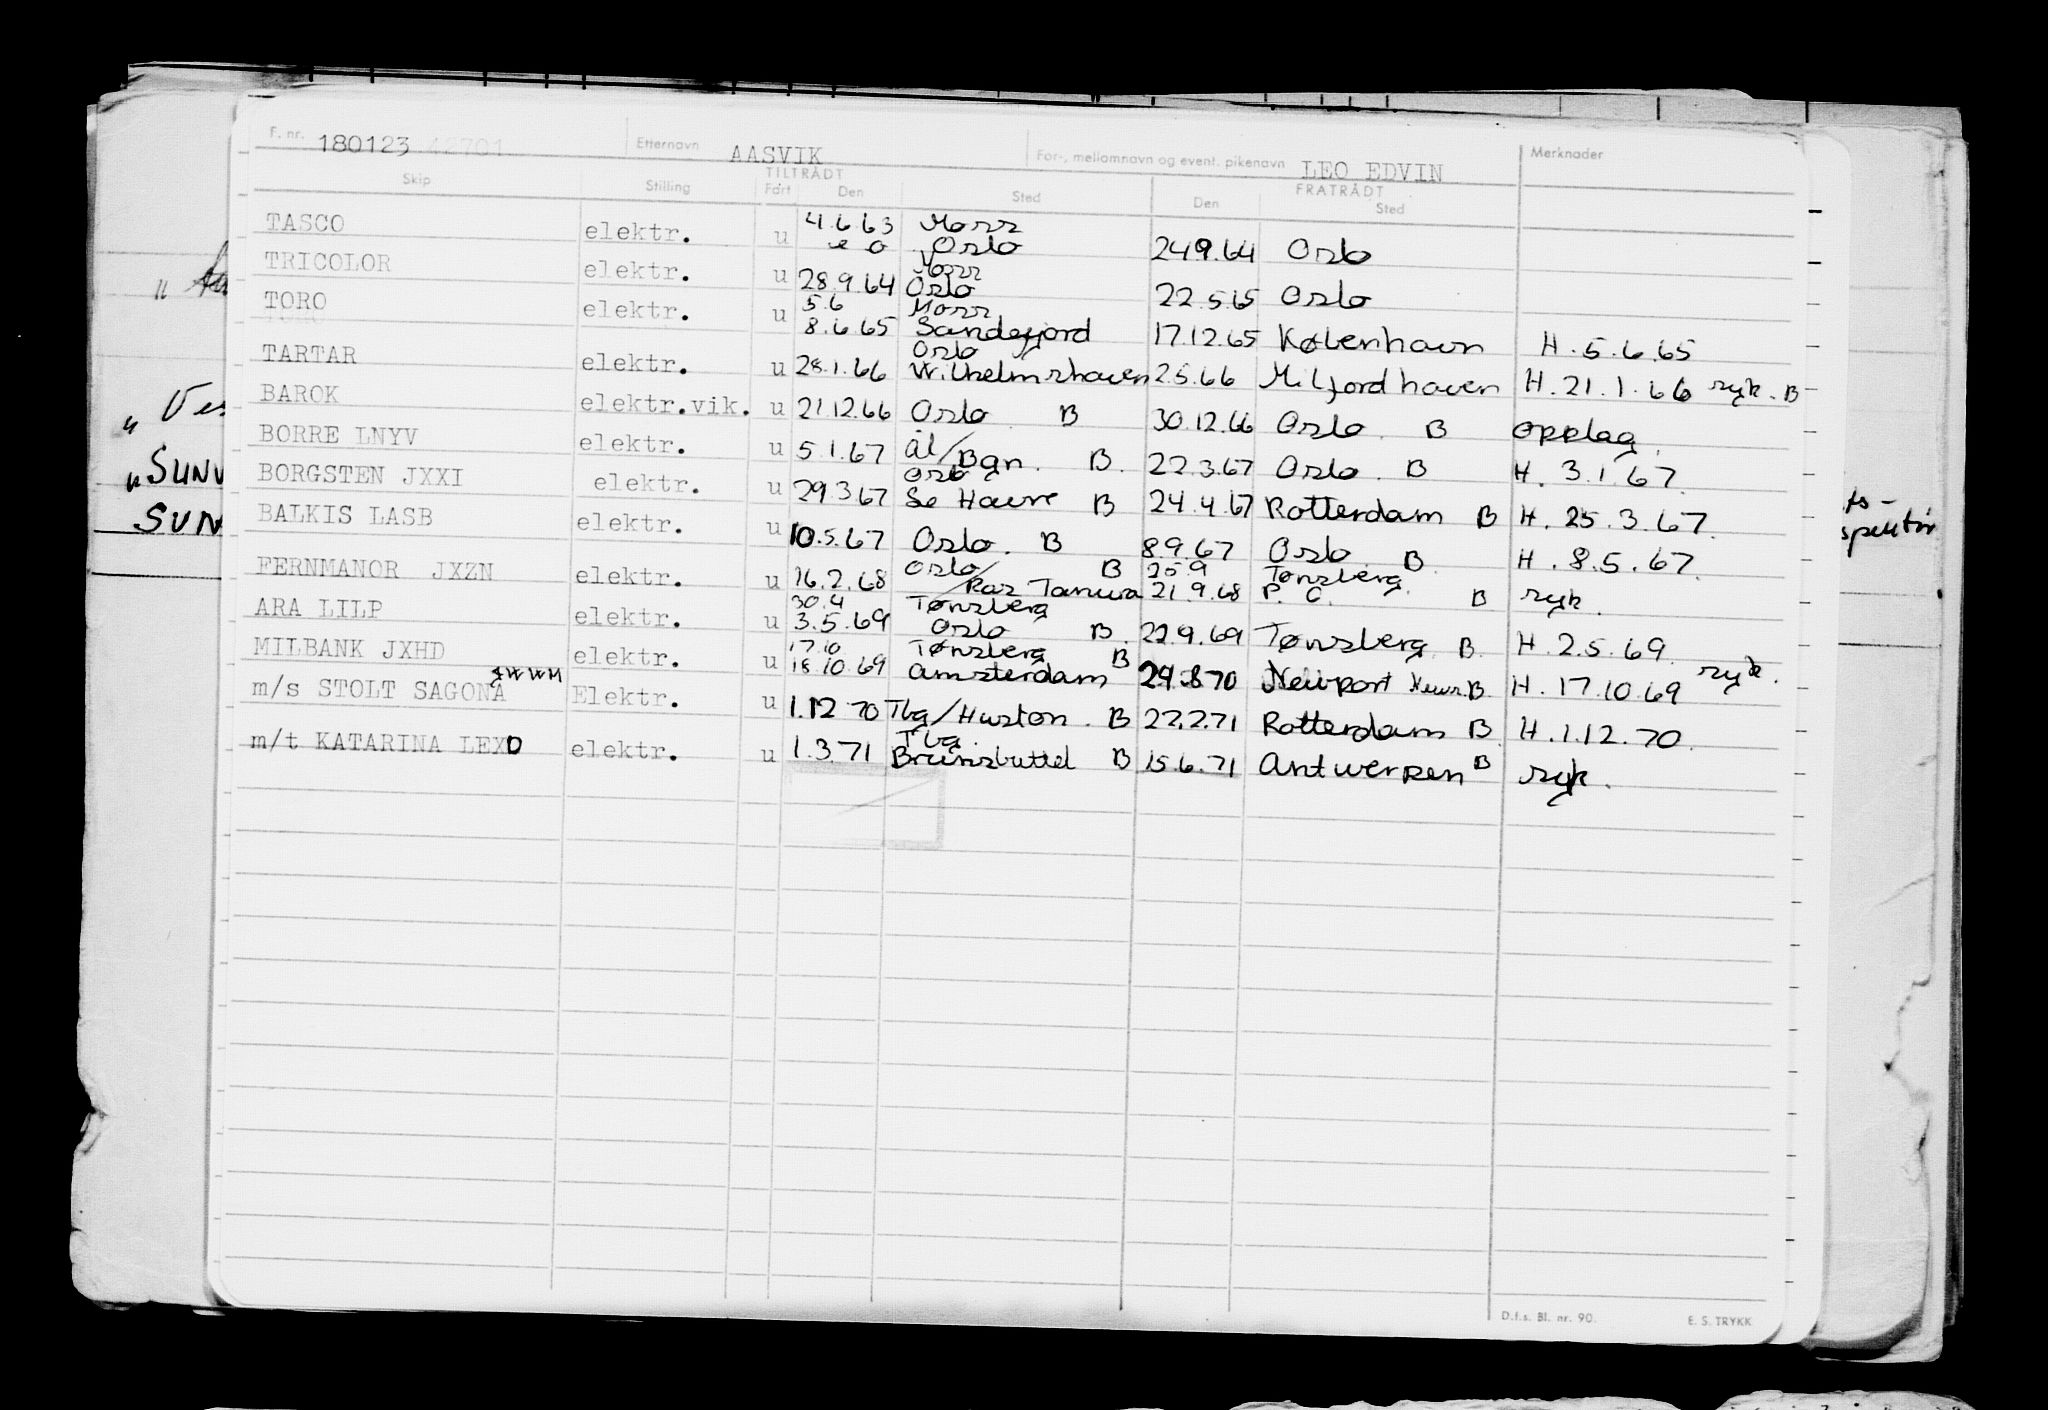 F. nr. 180123 42701 Etternavn AASVIK For-, mellomnavn og event. pikenavn LEO EDVIN Merknader
Skip Stilling TILTRÅDT Fart Den Sted FRATRÅDT Den Sted
TASCO elektr. u 4.6.63 Morr Oslo 24.9.64 Oslo
TRICOLOR elektr. u 28.9.64 Morr Oslo 22.5.65 Oslo
TORO elektr. u 5.6 8.6.65 Morr Sandefjord 17.12.65 København H. 5.6.65
TARTAR elektr. u 28.1.66 Oslo Wilhelmshaven 2.5.66 Milfordhaven H. 21.1.66 syk. B
BAROK elektr.vik. u 21.12.66 Oslo B 30.12.66 Oslo. B opplag.
BORRE LNYV elektr. u 5.1.67 Ål/Bgn. B. 22.3.67 Oslo. B H. 3.1.67.
BORGSTEN JXXI elektr. u 29.3.67 Oslo Le Havre B 24.4.67 Rotterdam B H. 25.3.67.
BALKIS LASB elektr. u 10.5.67 Oslo. B 8.9.67 Oslo B. H. 8.5.67.
FERNMANOR JXZN elektr. u 16.2.68 Oslo/Ras Tanura B 25.9 21.9.68 Tønsberg. P. C. B syk.
ARA LILP elektr. u 30.4 3.5.69 Tønsberg Oslo B. 22.9.69 Tønsberg. B. H. 2.5.69.
MILBANK JXHD elektr. u 17.10 18.10.69 Tønsberg Amsterdam B 24.8.70 Newport News. B H. 17.10.69 syk.
m/s STOLT SAGONA Elektr. u 1.12.70 Tbg/Huston. B 22.2.71 Rotterdam B. H. 1.12.70.
m/t KATARINA LEXO elektr. u 1.3.71 Tbg. Brunsbuttel B 15.6.71 Antwerpen B syk.
D.f.s. Bl. nr. 90. E. S. TRYKK